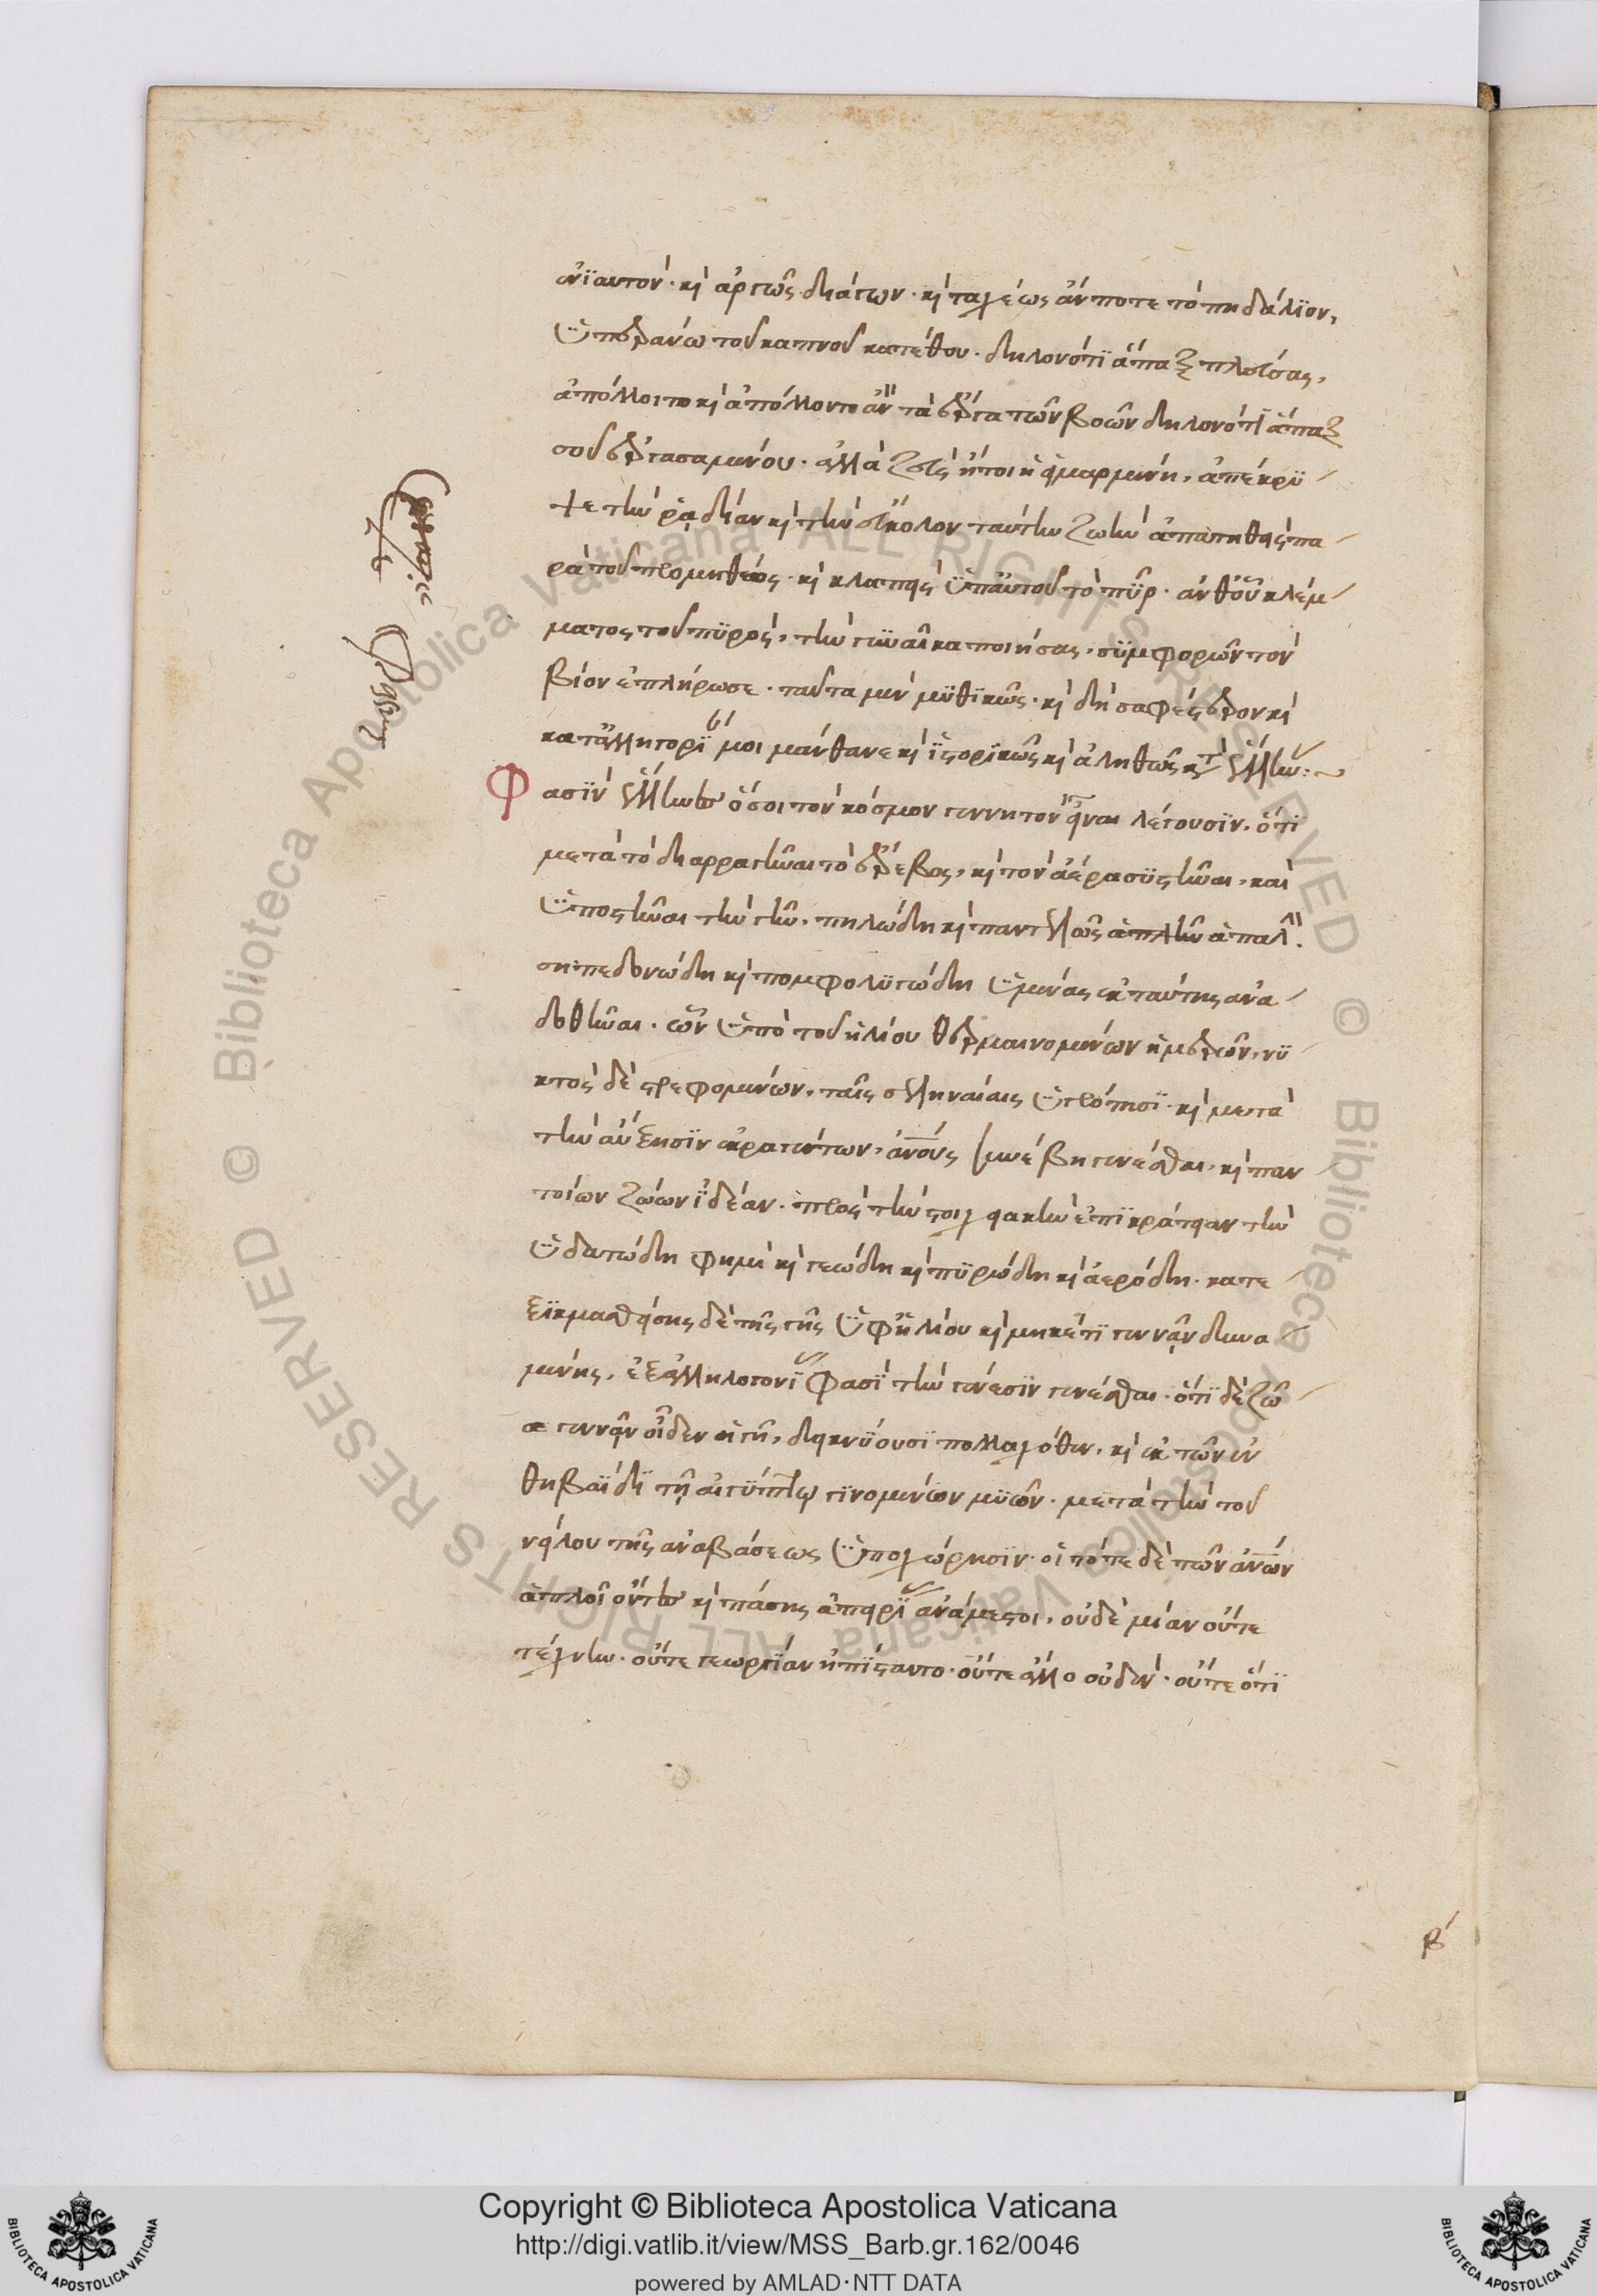 ἐνϊαυτὸν· κὶ ἀργῶς διάγων· κὶ ταχέως ἄν ποτε τὸ πηδάλϊον,
ὑπεράνω τοῦ καπνοῦ κατέθου· δηλονότϊ ἅπαξ πλεύσας,
ἀπόλλοιτο κὶ ἀπόλλοντο ἂν τὰ ἔργα τῶν βοῶν δηλονότϊ ἅπαξ
σοῦ ἐργασαμένου· ἀλλὰ ζεὺς ἤτοι ἡ εἱμαρμένη, ἀπέκρυ
ψε τὴν ῥαδίαν κὶ τὴν εὔκολον ταύτην ζωὴν ἀπατηθεὶς πα
ρὰ τοῦ προμηθέως· κὶ κλαπεὶς ὑπ' αὐτοῦ τὸ πῦρ· ἀνθ' οὗ κλέμ
ματος τοῦ πυρὸς, τὴν γυναῖκα ποιήσας, συμφορῶν τὸν
βίον ἐπλήρωσε· ταῦτα μὲν μυθϊκῶς· κὶ δὴ σαφέστερον κὶ
κατ' ἀλληγορί μοι μάνθανε κὶ ἱστορϊκῶς κὶ ἀληθῶς κτ ἕλλην:~
Φασὶν ἕλληνες ὅσοι τὸν κόσμον γεννητὸν εἶναι λέγουσϊν, ὅτϊ
μετὰ τὸ διαρραγῆναι τὸ ἔρεβος, κὶ τὸν ἀέρα συστῆναι, καὶ
ὑποστῆναι τὴν γῆν, πηλώδη κὶ παντελῶς ἁπλῆν ἁπαλ.
σηπεδονώδη κὶ πομφολυγώδη ὑμένας ἐκ ταύτης ἀνα
δοθῆναι· ὧν ὑπὸ τοῦ ἡλίου θερμαινομένων ἡμερῶν, νυ
κτὸς δὲ τρεφομένων, ταῖς σεληναίαις ὑγρότησϊ· κὶ μετὰ
τὴν αὔξησϊν ἐκραγέντων, ἀνους συνέβη γενέσθαι, κὶ παν
τοίων ζώων ἰδέαν· πρὸς τὴν στοιχειακὴν ἐπϊκράτειαν τὴν
ὑδατώδη φημὶ κὶ γεώδη κὶ πυρώδη κὶ ἀερώδη· κατε
ξϊκμασθείσης δὲ τῆς γῆς ὑφ' ἡλίου κὶ μηκέτϊ γεννᾶν δυνα
μένης, ἐξ ἀλληλογονϊ φασὶ τὴν γένεσϊν γενέσθαι· ὅτϊ δὲ ζῶ
α γεννᾶν οἶδεν ἡ γῆ, δεικνύουσϊ πολλαχόθεν, κὶ ἐκ τῶν ἐν
θηβαΐδϊ τῇ αἰγύπτῳ γϊνομένων μυῶν· μετὰ τὴν τοῦ
νείλου τῆς ἀναβάσεως ὑποχώρησϊν· οἱ τότε δὲ τῶν ἀνων
ἁπλοῖ ὄντες κὶ πάσης ἀπειρϊ ἀνάμεστοι, οὐδὲ μίαν οὔτε
τέχνην· οὔτε γεωργίαν ἠπίσταντο· οὔτε ἄλλο οὐδὲν· οὔτε ὅτϊ
β´
Copyright © Biblioteca Apostolica Vaticana
http://digi.vatlib.it/view/MSS_Barb.gr.162/0046
powered by AMLAD·NTT DATA
BIBLIOTECA APOSTOLICA VATICANA
BIBLIOTECA APOSTOLICA VATICANA
© Biblioteca Apostolica Vaticana ALL RIGHTS RESERVED © Biblioteca Apostolica Vaticana ALL RIGHTS RESERVED